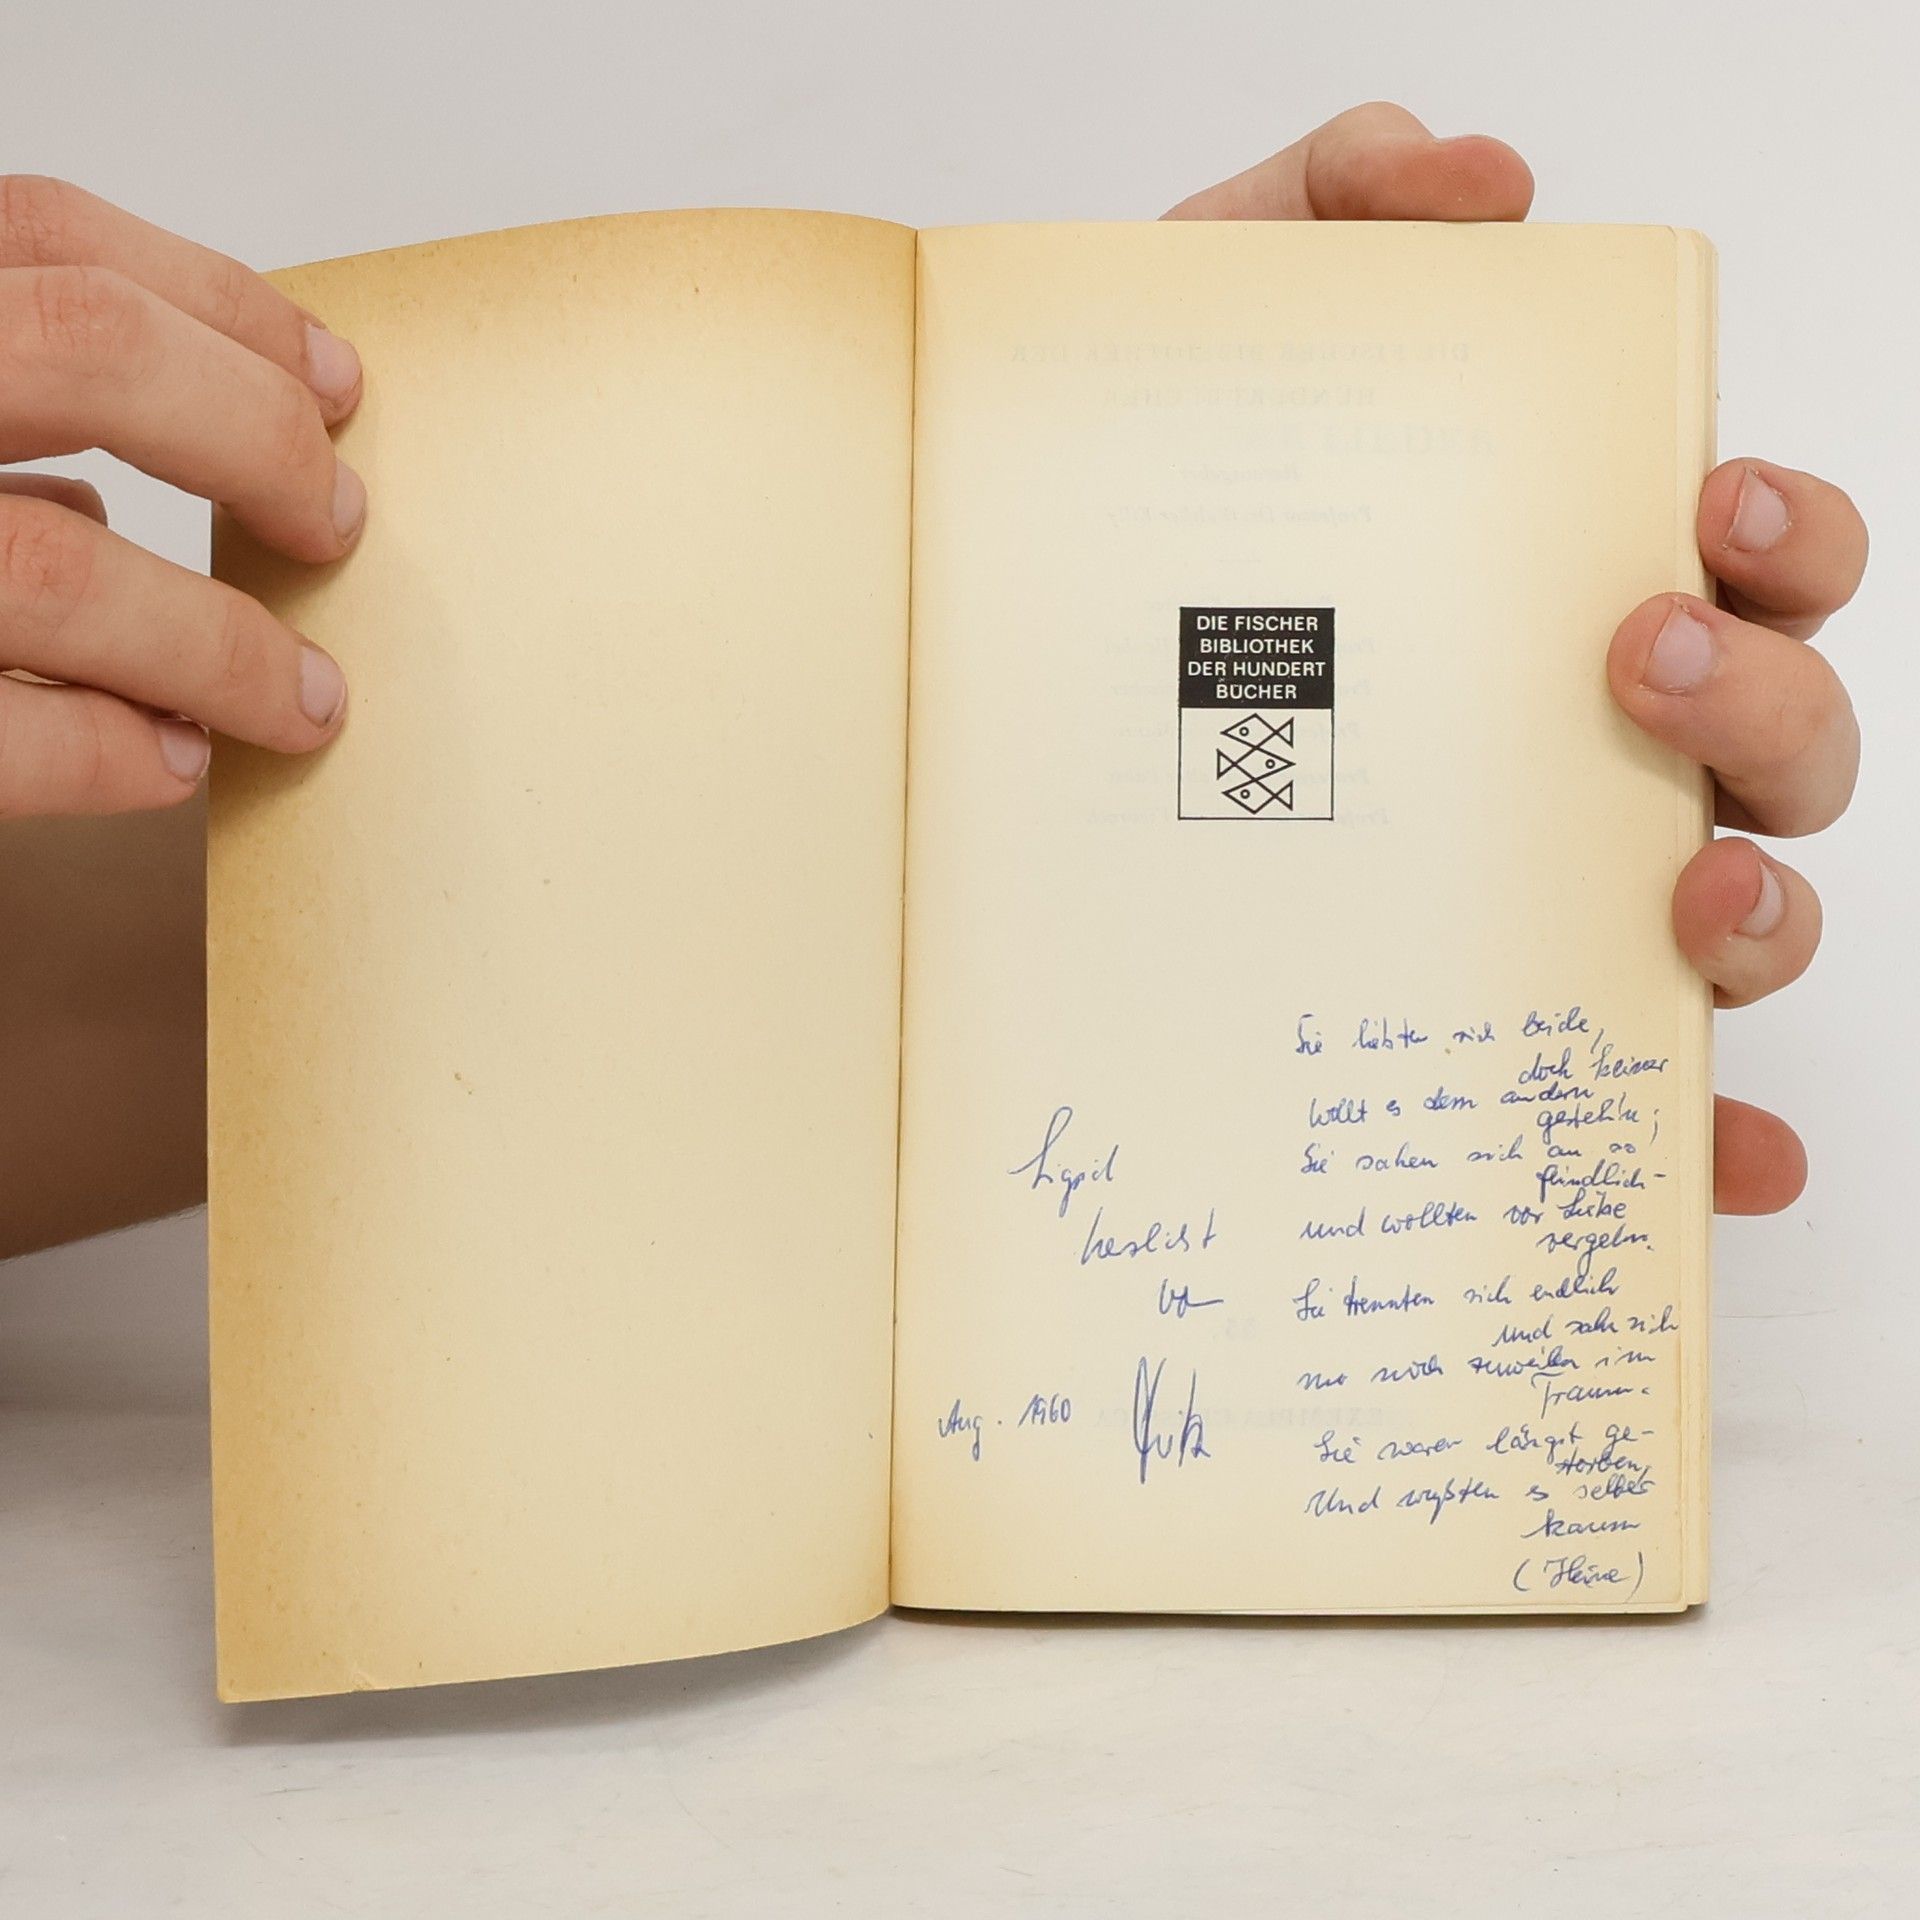 DIE FISCHER
BIBLIOTHEK
DER HUNDERT
BÜCHER
Sie liebten sich beide,
doch keiner
Wollt es dem andern
gesteh'n;
Sie sahen sich an so
feindlich-
und wollten vor Liebe
vergehn.
Sie trennten sich endlich
und sahn sich
nur noch zuweilen im
Traum.
Sie waren längst ge-
storben,
Und wußten es selber
kaum
(Heine)
Sigrid
herzlichst
von
Aug. 1960